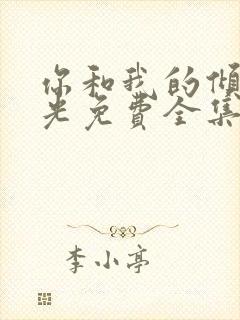 你和我的倾
光免费全集
李小亭